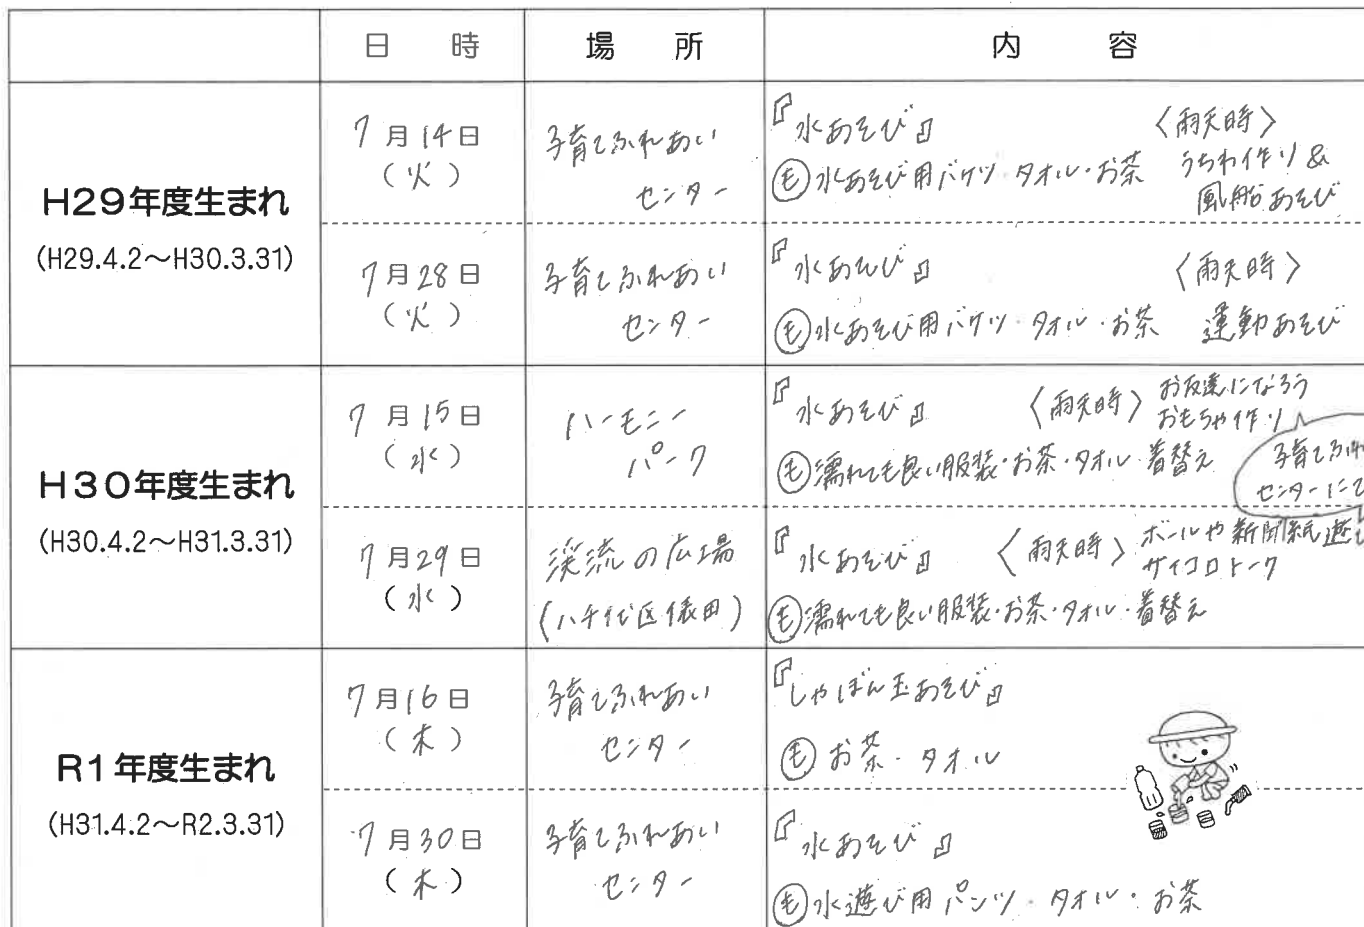 日 時 場 所 内 容
H29年度生まれ
(H29.4.2～H30.3.31)
7月14日
(火)
子育てふれあい
センター
『水あそび』 〈雨天時〉
㋲水あそび用バケツ・タオル・お茶 うちわ作り&
風船あそび
7月28日
(火)
子育てふれあい
センター
『水あそび』 〈雨天時〉
㋲水あそび用バケツ・タオル・お茶 運動あそび
H30年度生まれ
(H30.4.2～H31.3.31)
7月15日
(水)
ハーモニー
パーク
『水あそび』 〈雨天時〉 お友達になろう
おもちゃ作り
㋲濡れても良い服装・お茶・タオル・着替え
子育てふれ
センターにて
7月29日
(水)
渓流の広場
(八千代区俵田)
『水あそび』 〈雨天時〉 ボールや新聞紙遊び
サイコロトーク
㋲濡れても良い服装・お茶・タオル・着替え
R1年度生まれ
(H31.4.2～R2.3.31)
7月16日
(木)
子育てふれあい
センター
『しゃぼん玉あそび』
㋲お茶・タオル
7月30日
(木)
子育てふれあい
センター
『水あそび』
㋲水遊び用パンツ・タオル・お茶